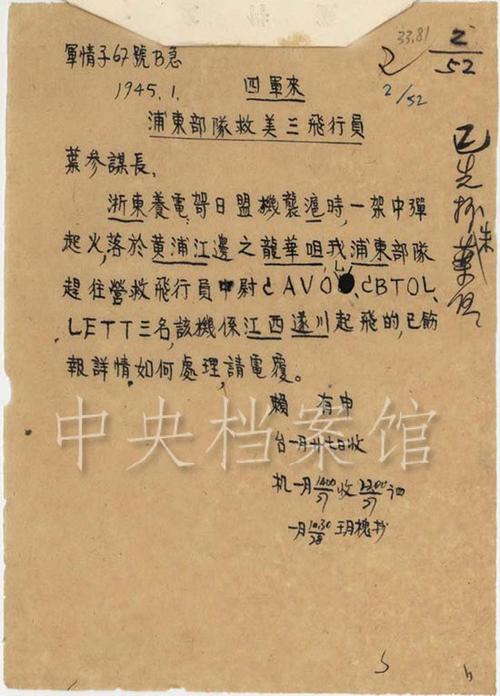 33,81
2
2/52
2/52
軍情子67號B急
1945.1. 四軍來
浦東部隊救美三飛行員
已先抄朱葉
葉參謀長、
浙東養電哿日盟機襲滬時,一架中彈
起火,落於黄浦江邊之龍華咀,我浦東部隊
趕往營救飛行員中尉cAVO、cBTOL、
LETT三名,該機係江西遂川起飛的,已飭
報詳情,如何處理,請電覆。
賴 有申
台一月廿七日收
机一月1400/27收2200/27
一月10.30/28 玥槐抄
中央档案馆